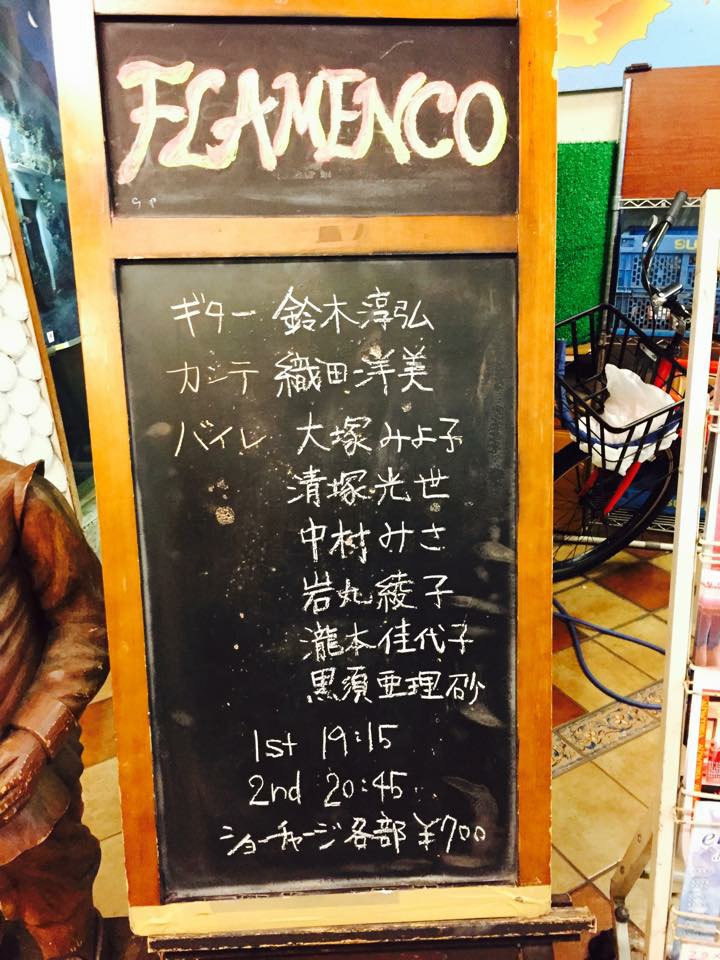 FLAMENCO
ギター 鈴木淳弘
カンテ 織田洋美
バイレ 大塚みよ子
清塚光世
中村みさ
岩丸綾子
瀧本佳代子
黒須亜理砂
1st 19:15
2nd 20:45
ショーチャージ各部 ¥700